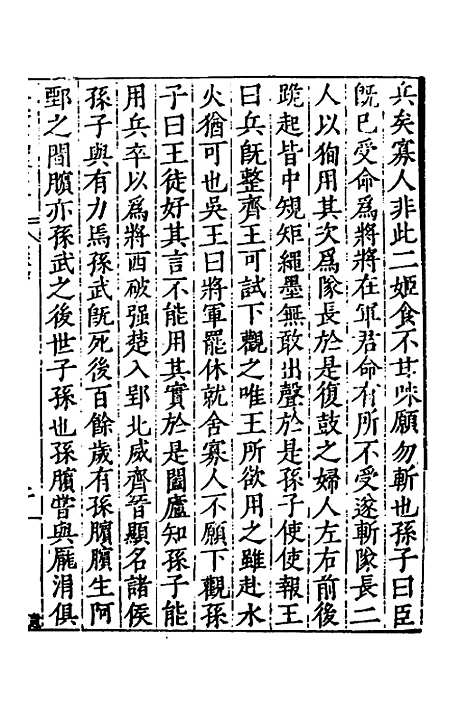 兵矣寡人非此二姬食不甘味願勿斬也孫子曰臣
旣已受命爲將將在軍君命有所不受遂斬隊長二
人以狥用其次爲隊長於是復鼓之婦人左右前後
跪起皆中規矩繩墨無敢出聲於是孫子使使報王
曰兵旣整齊王可試下觀之唯王所欲用之雖赴水
火猶可也吳王曰將軍罷休就舍寡人不願下觀孫
子曰王徒好其言不能用其實於是闔廬知孫子能
用兵卒以爲將西破强楚入郢北威齊晉顯名諸侯
孫子與有力焉孫武旣死後百餘歲有孫臏臏生阿
鄄之間臏亦孫武之後世子孫也孫臏嘗與龐涓俱